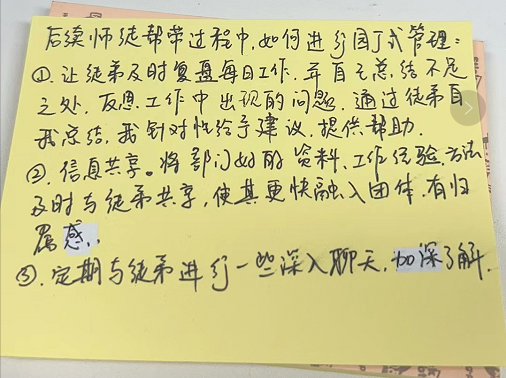 后续师徒帮带过程中,如何进行园丁式管理:
①.让徒弟及时复盘每日工作.并自己总结不足
之处,反思工作中出现的问题.通过徒弟自
我总结,我针对性给予建议,提供帮助.
②.信息共享。将部门好的资料、工作经验、方法
及时与徒弟共享,使其更快融入团体,有归
属感.
③.定期与徒弟进行一些深入聊天,加深了解.